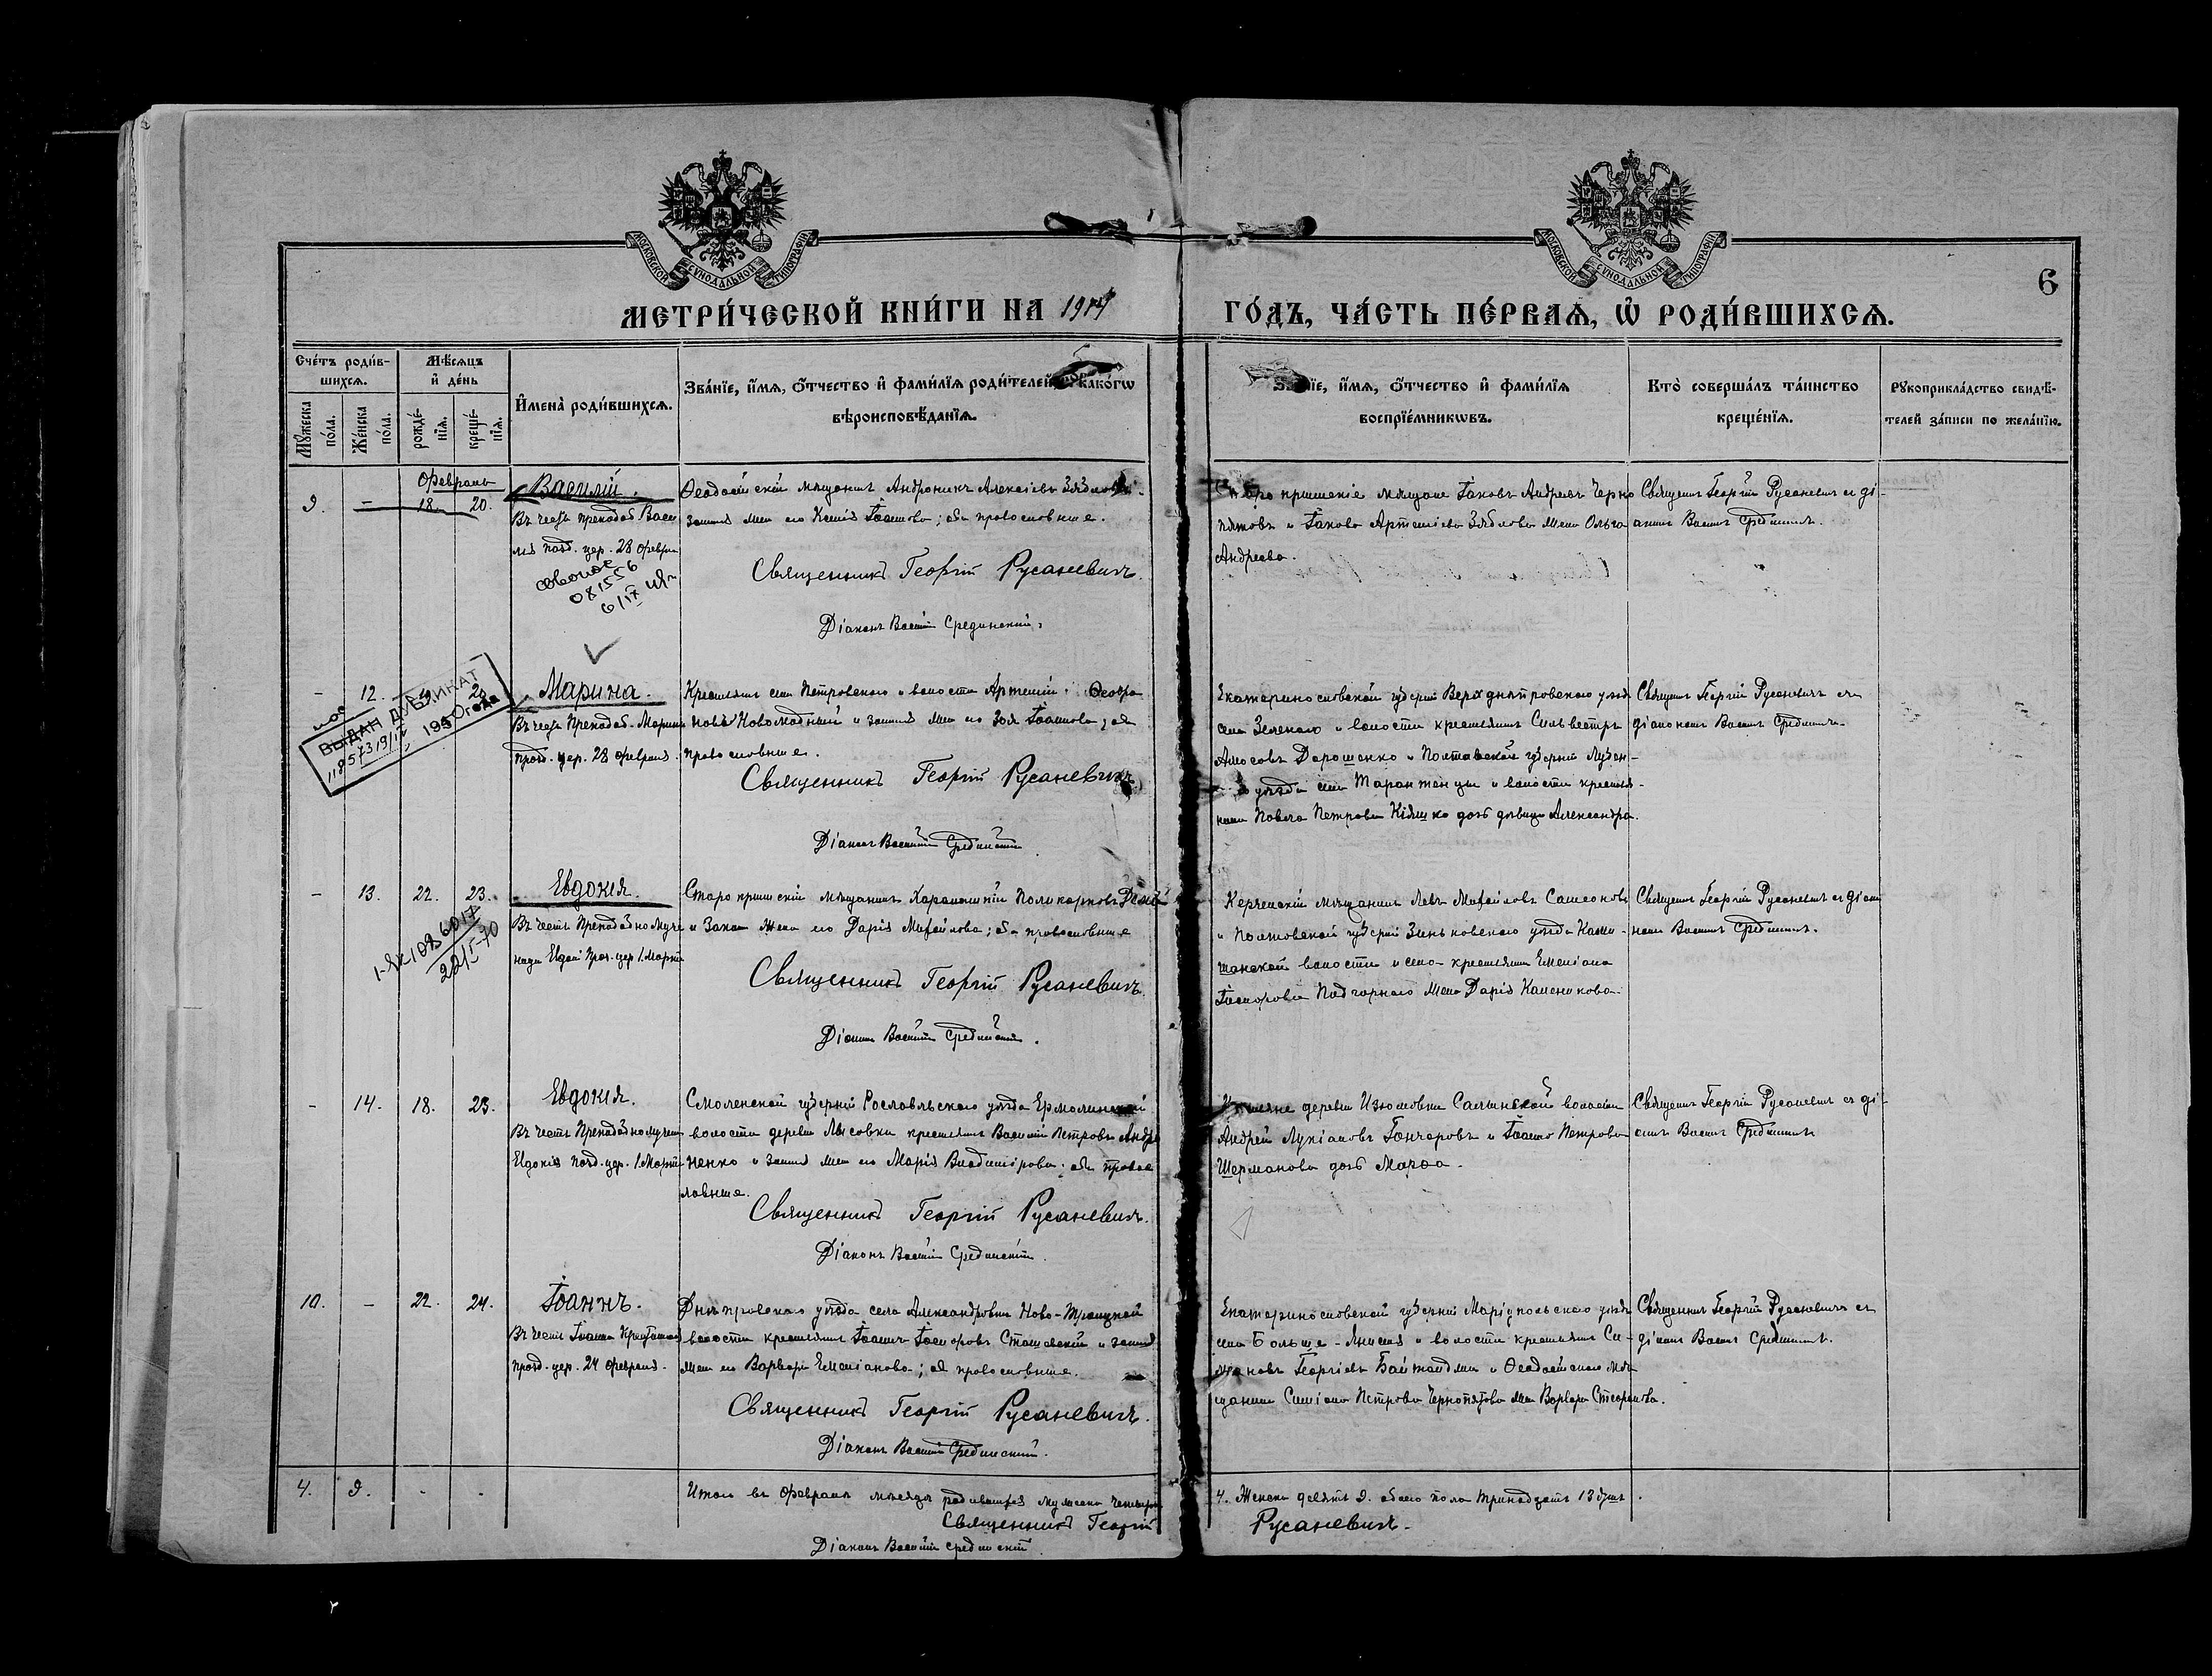 МОСКОВСКОЙ СѴНОДАЛЬНОЙ ТИПОГРАФІИ
МОСКОВСКОЙ СѴНОДАЛЬНОЙ ТИПОГРАФІИ
6
МЕТРИ́ЧЕСКОЙ КНИ́ГИ НА 1914
ГО́ДЪ, ЧА́СТЬ ПЕ́РВАѦ, Ѡ҆ РОДИ́ВШИХСѦ.
Сче́тъ роди́в-
шихсѧ.
Мѣ́сѧцъ
и҆ де́нь
Мꙋ́жеска
по́ла.
Же́нска
по́ла.
рожде́-
нїѧ.
креще́-
нїѧ.
И҆мена̀ роди́вшихсѧ.
Зва́нїе, и҆́мѧ, ѻ҆́тчество и҆ фами́лїѧ роди́телей, како́гѡ
вѣроисповѣ́данїѧ.
Зва́нїе, и҆́мѧ, ѻ҆́тчество и҆ фами́лїѧ
воспрїе́мникѡвъ.
Кто̀ соверша́лъ та́инство
креще́нїѧ.
Рꙋкоприкла́дство свидѣ́-
телей за́писи по жела́нїю.
Февраль
9. - 18. 20. Василій.
Ѳеодосійскій мѣщанинъ Андроникъ Алексіевъ
жена его Ксенія Іоаннова; оба православные.
Въ честь преподоб. Васи
лія празд. цер. 28 февра
081556
Священникъ Георгій Русаневичъ.
Діаконъ Василій Срединскій.
мѣщане Іаковъ Андреевъ Черно
пятовъ и Іакова Артеміева Зяблова жена Ольга
Андреева.
Священ. Георгій Русаневичъ съ ді-
акон. Васил. Срединск.
ВЫДАН ДУБЛИКАТ
1950 года
- 12. 20. Марина.
Въ честь Преподоб. Марины
празд. цер. 28 февраля.
Крестьян. села Петровскаго и волости Артемій
новъ Новомодный и законная жена его Зоя Іоаннова; оба
православные.
Священникъ Георгій Русаневичъ.
Діаконъ Василій Срединскій
Екатеринославской губерніи Верхнеднѣпровскаго уѣзда
села Зеленаго и волости крестьянинъ Сильвестръ
Амосовъ Дорошенко и Полтавской губерніи Лубен-
уѣзда села Тарантенцы и волости крестья-
нина Павла Петрова Кіяшко дочь дѣвица Александра.
Священ. Георгій Русаневичъ съ
діаконом Васил. Срединск.
- 13. 22. 23. Евдокія.
Въ честь Преподобномуче
ницы Евдок. праз. цер. 1. Марта
Старокрымскій мѣщанинъ Харлампій Поликарповъ
и закон. жена его Дарія Михайлова; оба православные
Священникъ Георгій Русаневичъ.
Діаконъ Василій Срединскій.
Керченскій мѣщанинъ Левъ Михайловъ Самсоновъ
и Полтавской губерніи Зеньковскаго уѣзда
волости и села крестьянина Емеліана
Подгорнаго жена Дарія
Священ. Георгій Русаневичъ съ діако
ном Васил. Срединск.
- 14. 18. 23. Евдокія.
Въ честь Преподобномучен
Евдокіи празд. цер. 1. Марта
Смоленской губерніи Рославльскаго уѣзда Ермолинской
волости деревни Лысовки крестьянинъ Василій Петровъ Андре
ненко и законная жена его Марія Владимірова; оба право
славные.
Священникъ Георгій Русаневичъ.
Діаконъ Василій Срединскій.
деревни Изюмовки Салынской волости
Андрей Лукіановъ Гончаровъ и Іоанна Петрова
Шерманова дочь Марѳа.
Священ. Георгій Русаневичъ съ ді-
акон. Васил. Срединск.
10. - 22. 24. Іоаннъ.
Въ честь Іоанна Крестителя
празд. цер. 24 февраля.
Днѣпровскаго уѣзда села Александровки Ново-Троицкой
волости крестьянинъ Іоаннъ Сташевскій и законная
жена его Варвара Емеліанова; оба православные.
Священникъ Георгій Русаневичъ.
Діаконъ Василій Срединскій.
Екатеринославской губерніи Маріупольскаго уѣзда
села Больше-Янисоля и волости крестьянинъ Си-
Георгіевъ и Ѳеодосійскаго мѣ-
щанина Симеона Петрова Чернопятова жена Варвара Стефанова.
Священникъ Георгій Русаневичъ съ
діакон. Васил. Срединск.
4. 9. - -
Итого въ Февралѣ мѣсяцѣ родившихся мужеска четыре
4. Женска девять 9. обоего пола тринадцать 13 душъ.
Священникъ Георгій
Русаневичъ.
Діаконъ Василій Срединскій